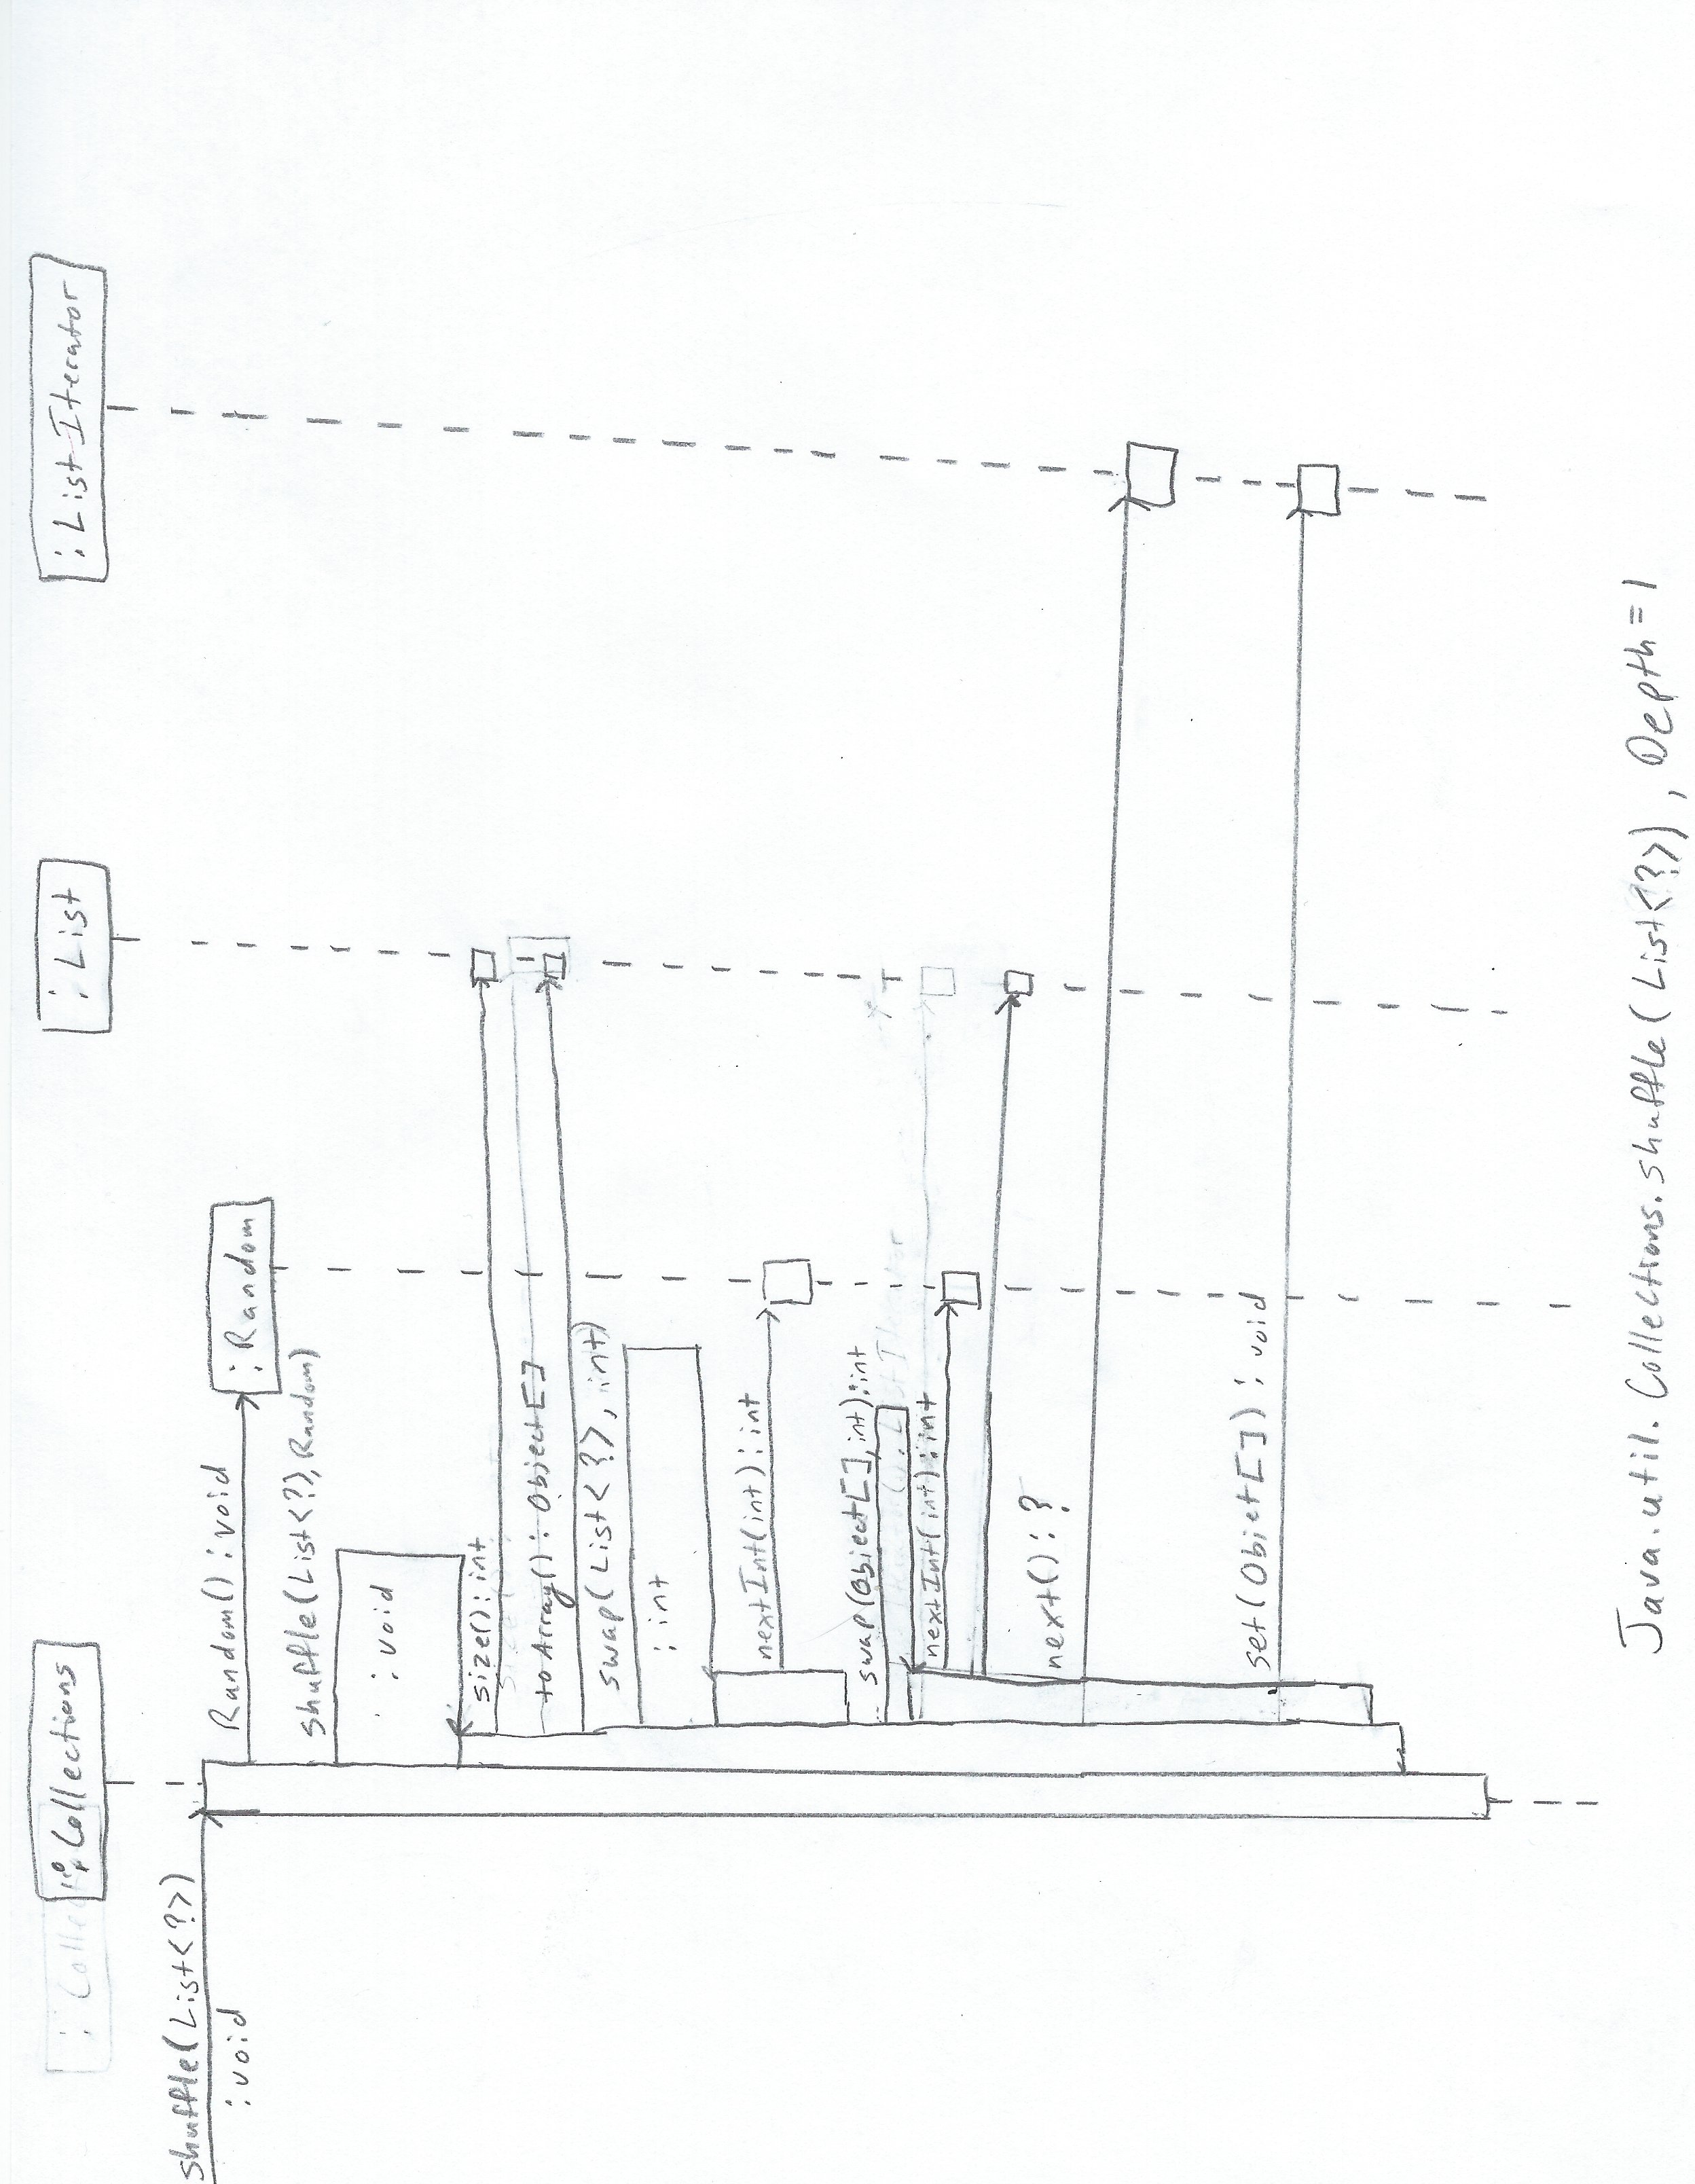 :Collections
:List
:ListIterator
shuffle(List<?>)
:void
Random():void
:Random
shuffle(List<?>,Random)
:void
size():int
toArray():Object[]
swap(List<?>,int)
:int
nextInt(int):int
swap(Object[],int):int
nextInt(int):int
next():?
set(Object[]):void
Java.util.Collections.shuffle(List<?>), Depth=1